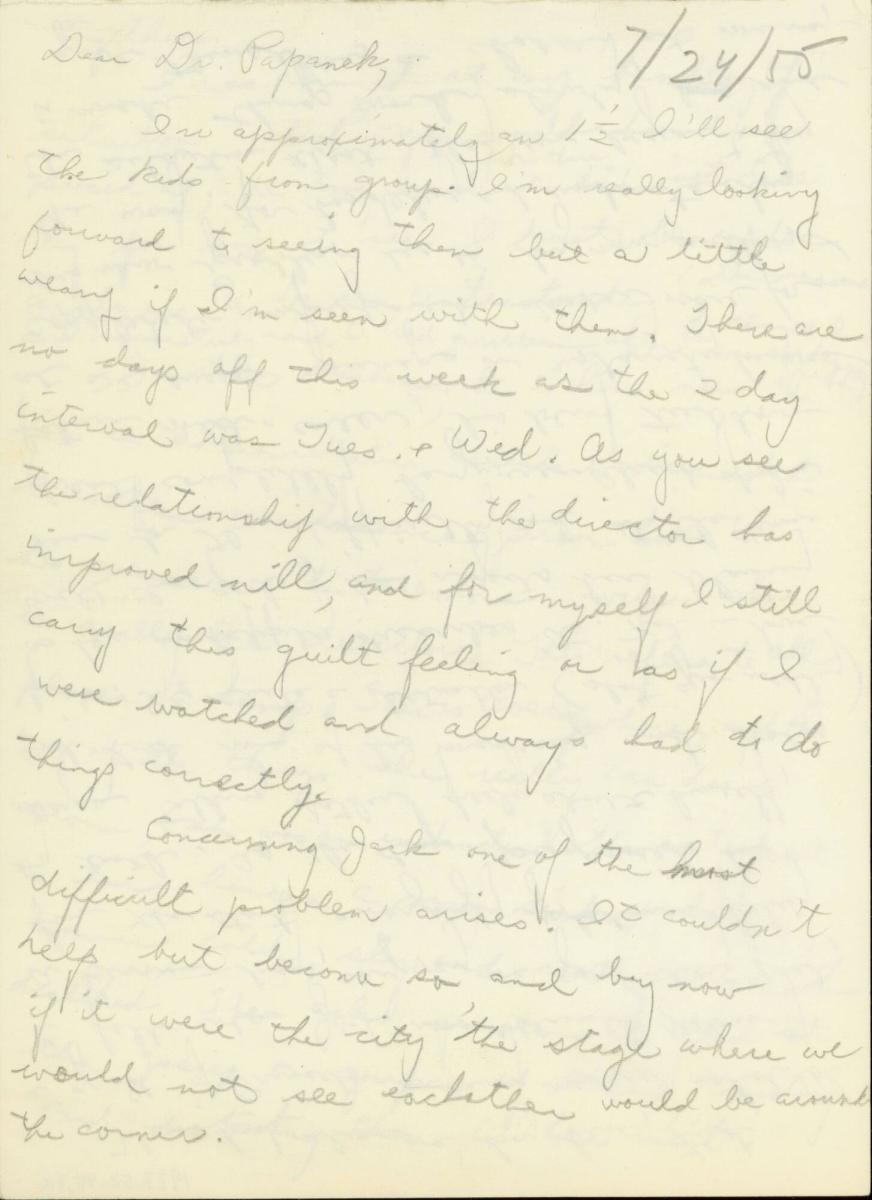 7/24/55
Dear Dr. Papanek,
In approximately an 1½ I'll see
the kids from group. I'm really looking
forward to seeing them but a little
weary if I'm seen with them. There are
no days off this week as the 2 day
interval was Tues. & Wed. As you see
the relationship with the director has
improved nill, and for myself I still
carry this guilt feeling or as if I
were watched and always had to do
things correctly.
Concerning Jack one of the most
difficult problem arises. It couldn't
help but become so, and by now
if it were the city, the stage where we
would not see eachother would be around
the corner.